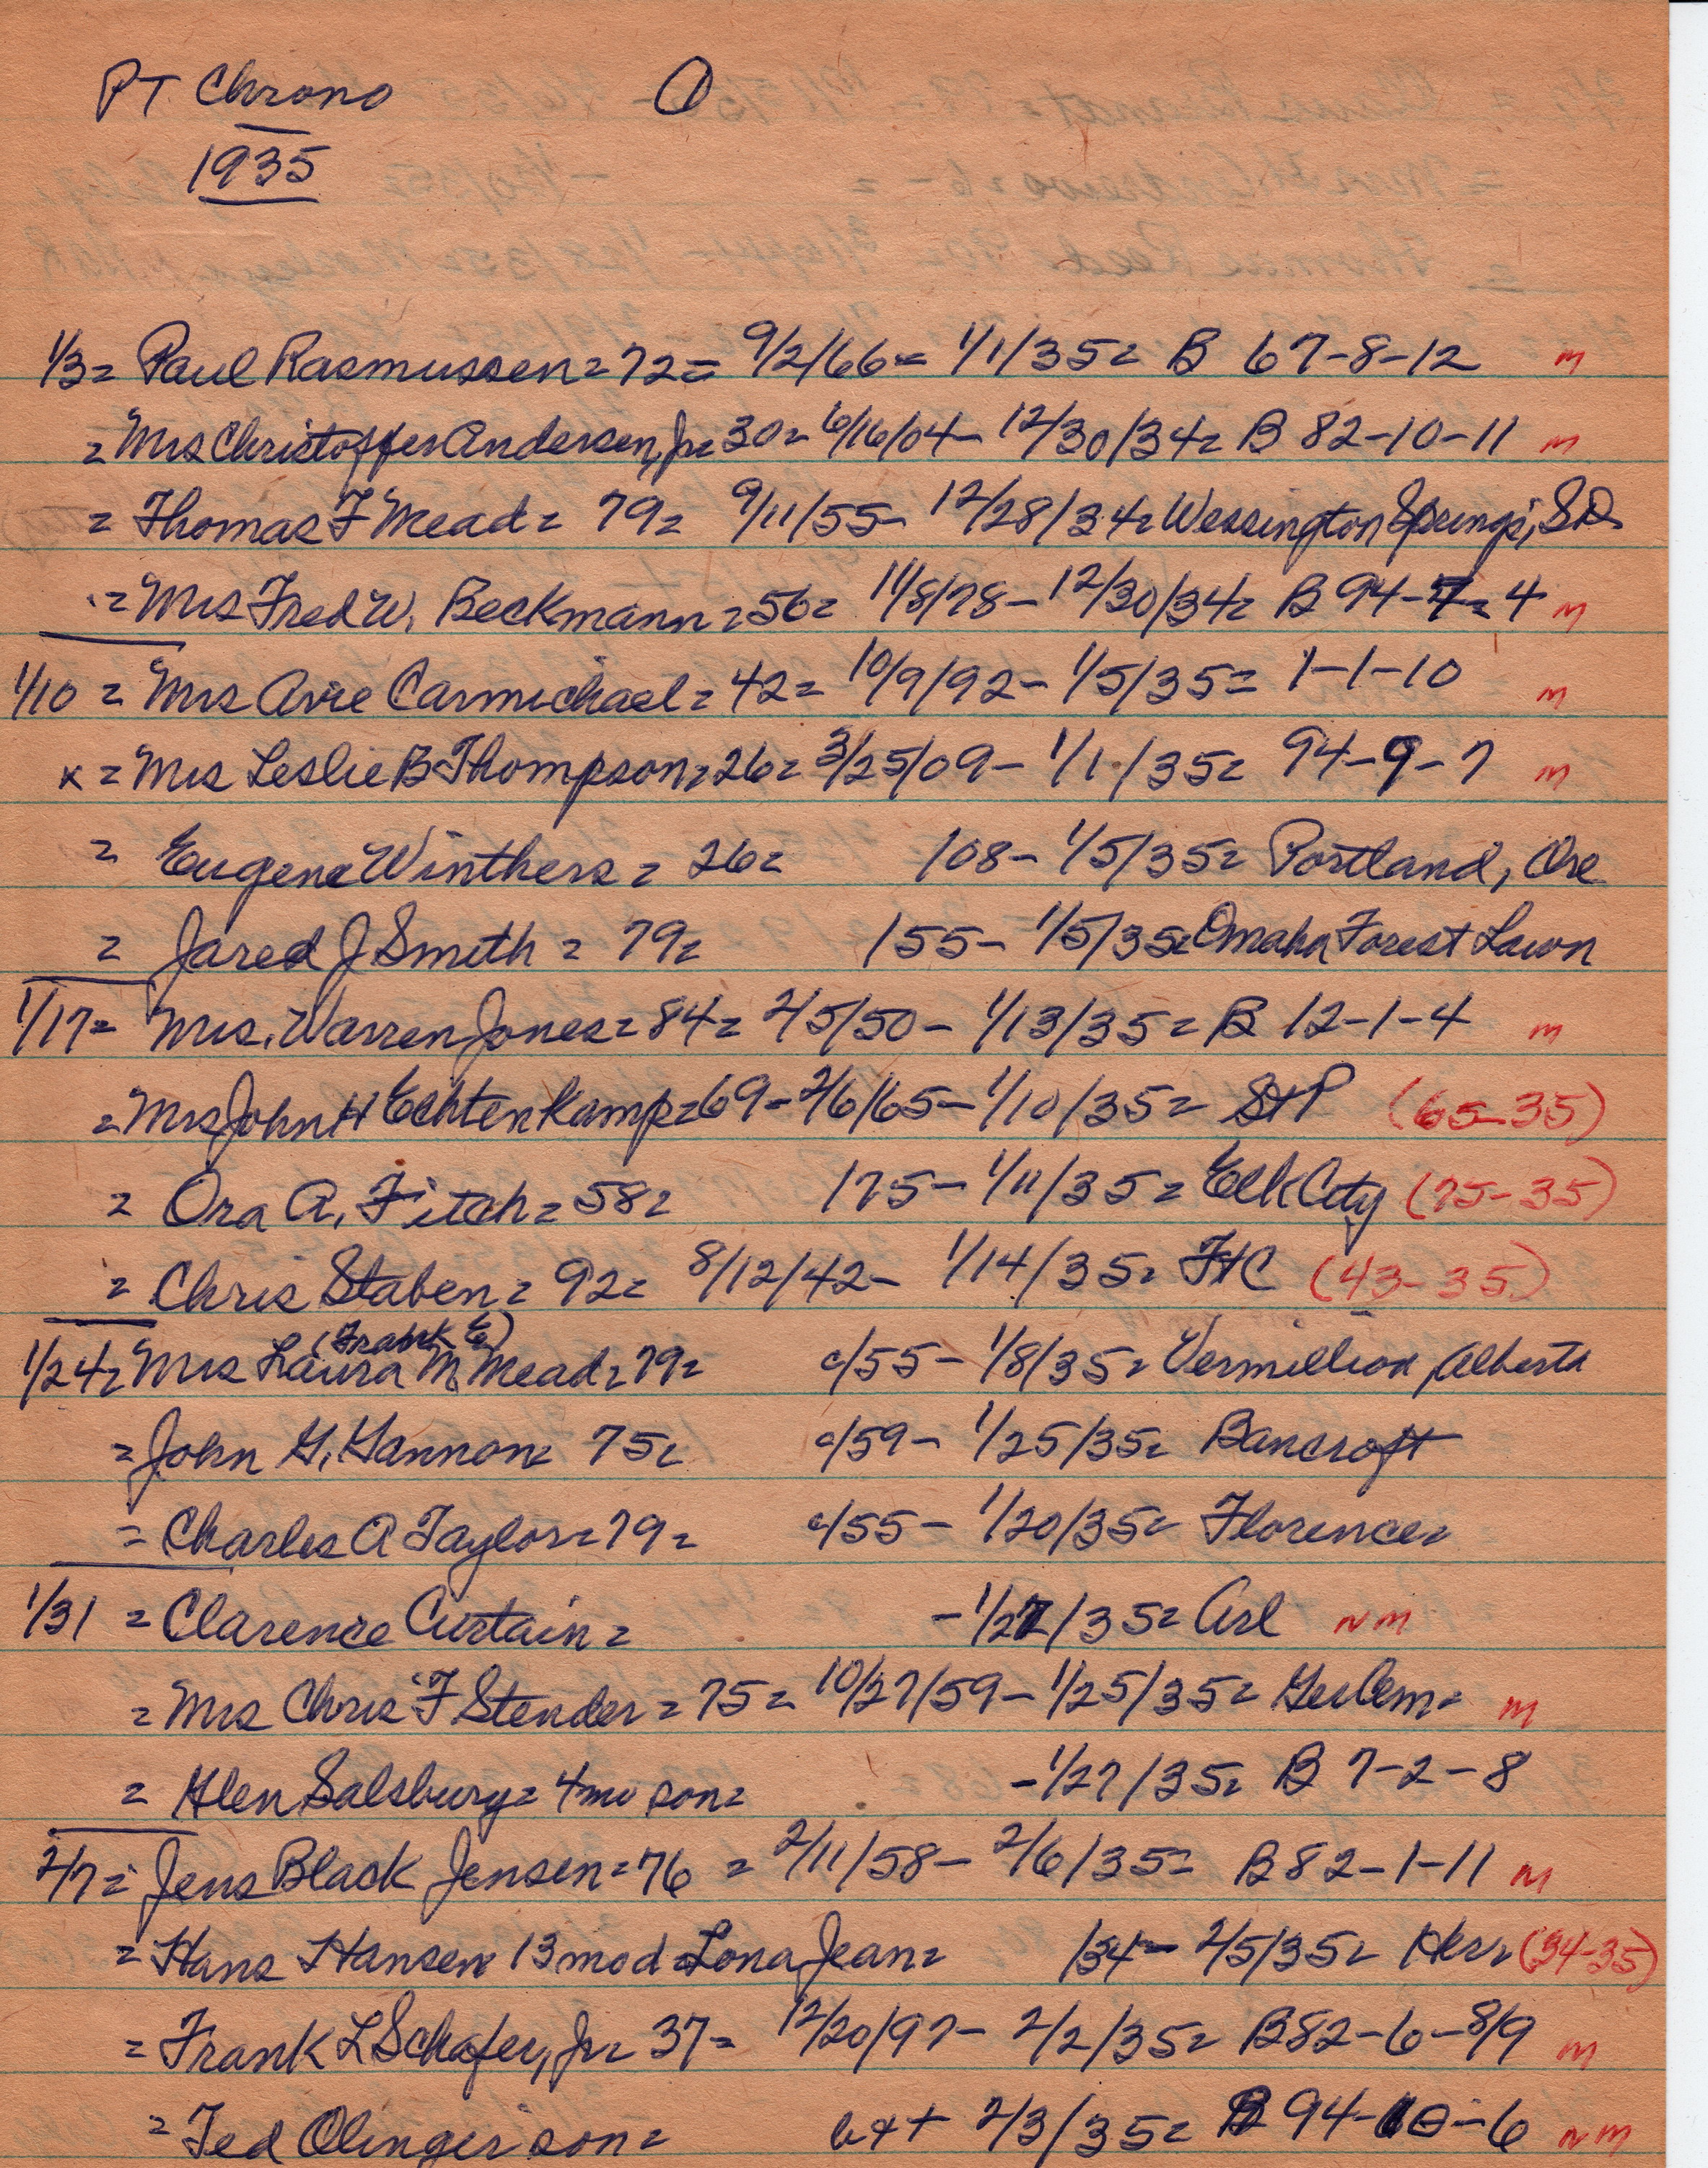 PT Chrono 1
1935
1/3= Paul Rasmussen = 72 = 9/2/66 = 1/1/35 = B 67-8-12 m
= Mrs Christoffer Andersen, Jr = 30 = 6/16/04 - 12/30/34 = B 82-10-11 m
= Thomas F Mead = 79 = 9/11/55 - 12/28/34 = Wessington Springs, SD
= Mrs Fred W. Beckmann = 56 = 11/8/78 - 12/30/34 = B 94-7=4 m
1/10 = Mrs Avie Carmichael = 42 = 10/9/92 - 1/5/35 = 1-1-10 m
x = Mrs Leslie B Thompson = 26 = 3/25/09 - 1/1/35 = 94-9-7 m
= Eugene Winthers = 26 = /08 - 1/5/35 = Portland, Ore
= Jared J Smith = 79 = /55 - 1/5/35 = Omaha Forest Lawn
1/17 = Mrs. Warren Jones = 84 = 2/5/50 - 1/13/35 = B 12-1-4 m
= Mrs John H Echtenkamp = 69 - 2/6/65 - 1/10/35 = StP (65-35)
= Ora A. Fitch = 58 = /75 - 1/11/35 = Elk City (75-35)
= Chris Staben = 92 = 8/12/42 - 1/14/35 = FtC (43-35)
(Frank E)
1/24 = Mrs Laura M. Mead = 79 = c/55 - 1/8/35 = Vermillion, Alberta
= John G. Gannon = 75 = c/59 - 1/25/35 = Bancroft
= Charles A Taylor = 79 = c/55 - 1/20/35 = Florence =
1/31 = Clarence Curtain = - 1/27/35 = Arl nm
= Mrs Chris F Stender = 75 = 10/27/59 - 1/25/35 = Ger Cem = m
= Glen Salsbury = 4mo son = - 1/27/35 = B 7-2-8
2/7 = Jens Black Jensen = 76 = 2/11/58 - 2/6/35 = B 82-1-11 m
= Hans Hansen 13 mo d = Lona Jean = /34 - 2/5/35 = Her = (34-35)
= Frank L Schafer, Jr = 37 = 12/20/97 - 2/2/35 = B 82-6-8/9 m
= Ted Olinger son = b+t 2/3/35 = B 94-10-6 nm